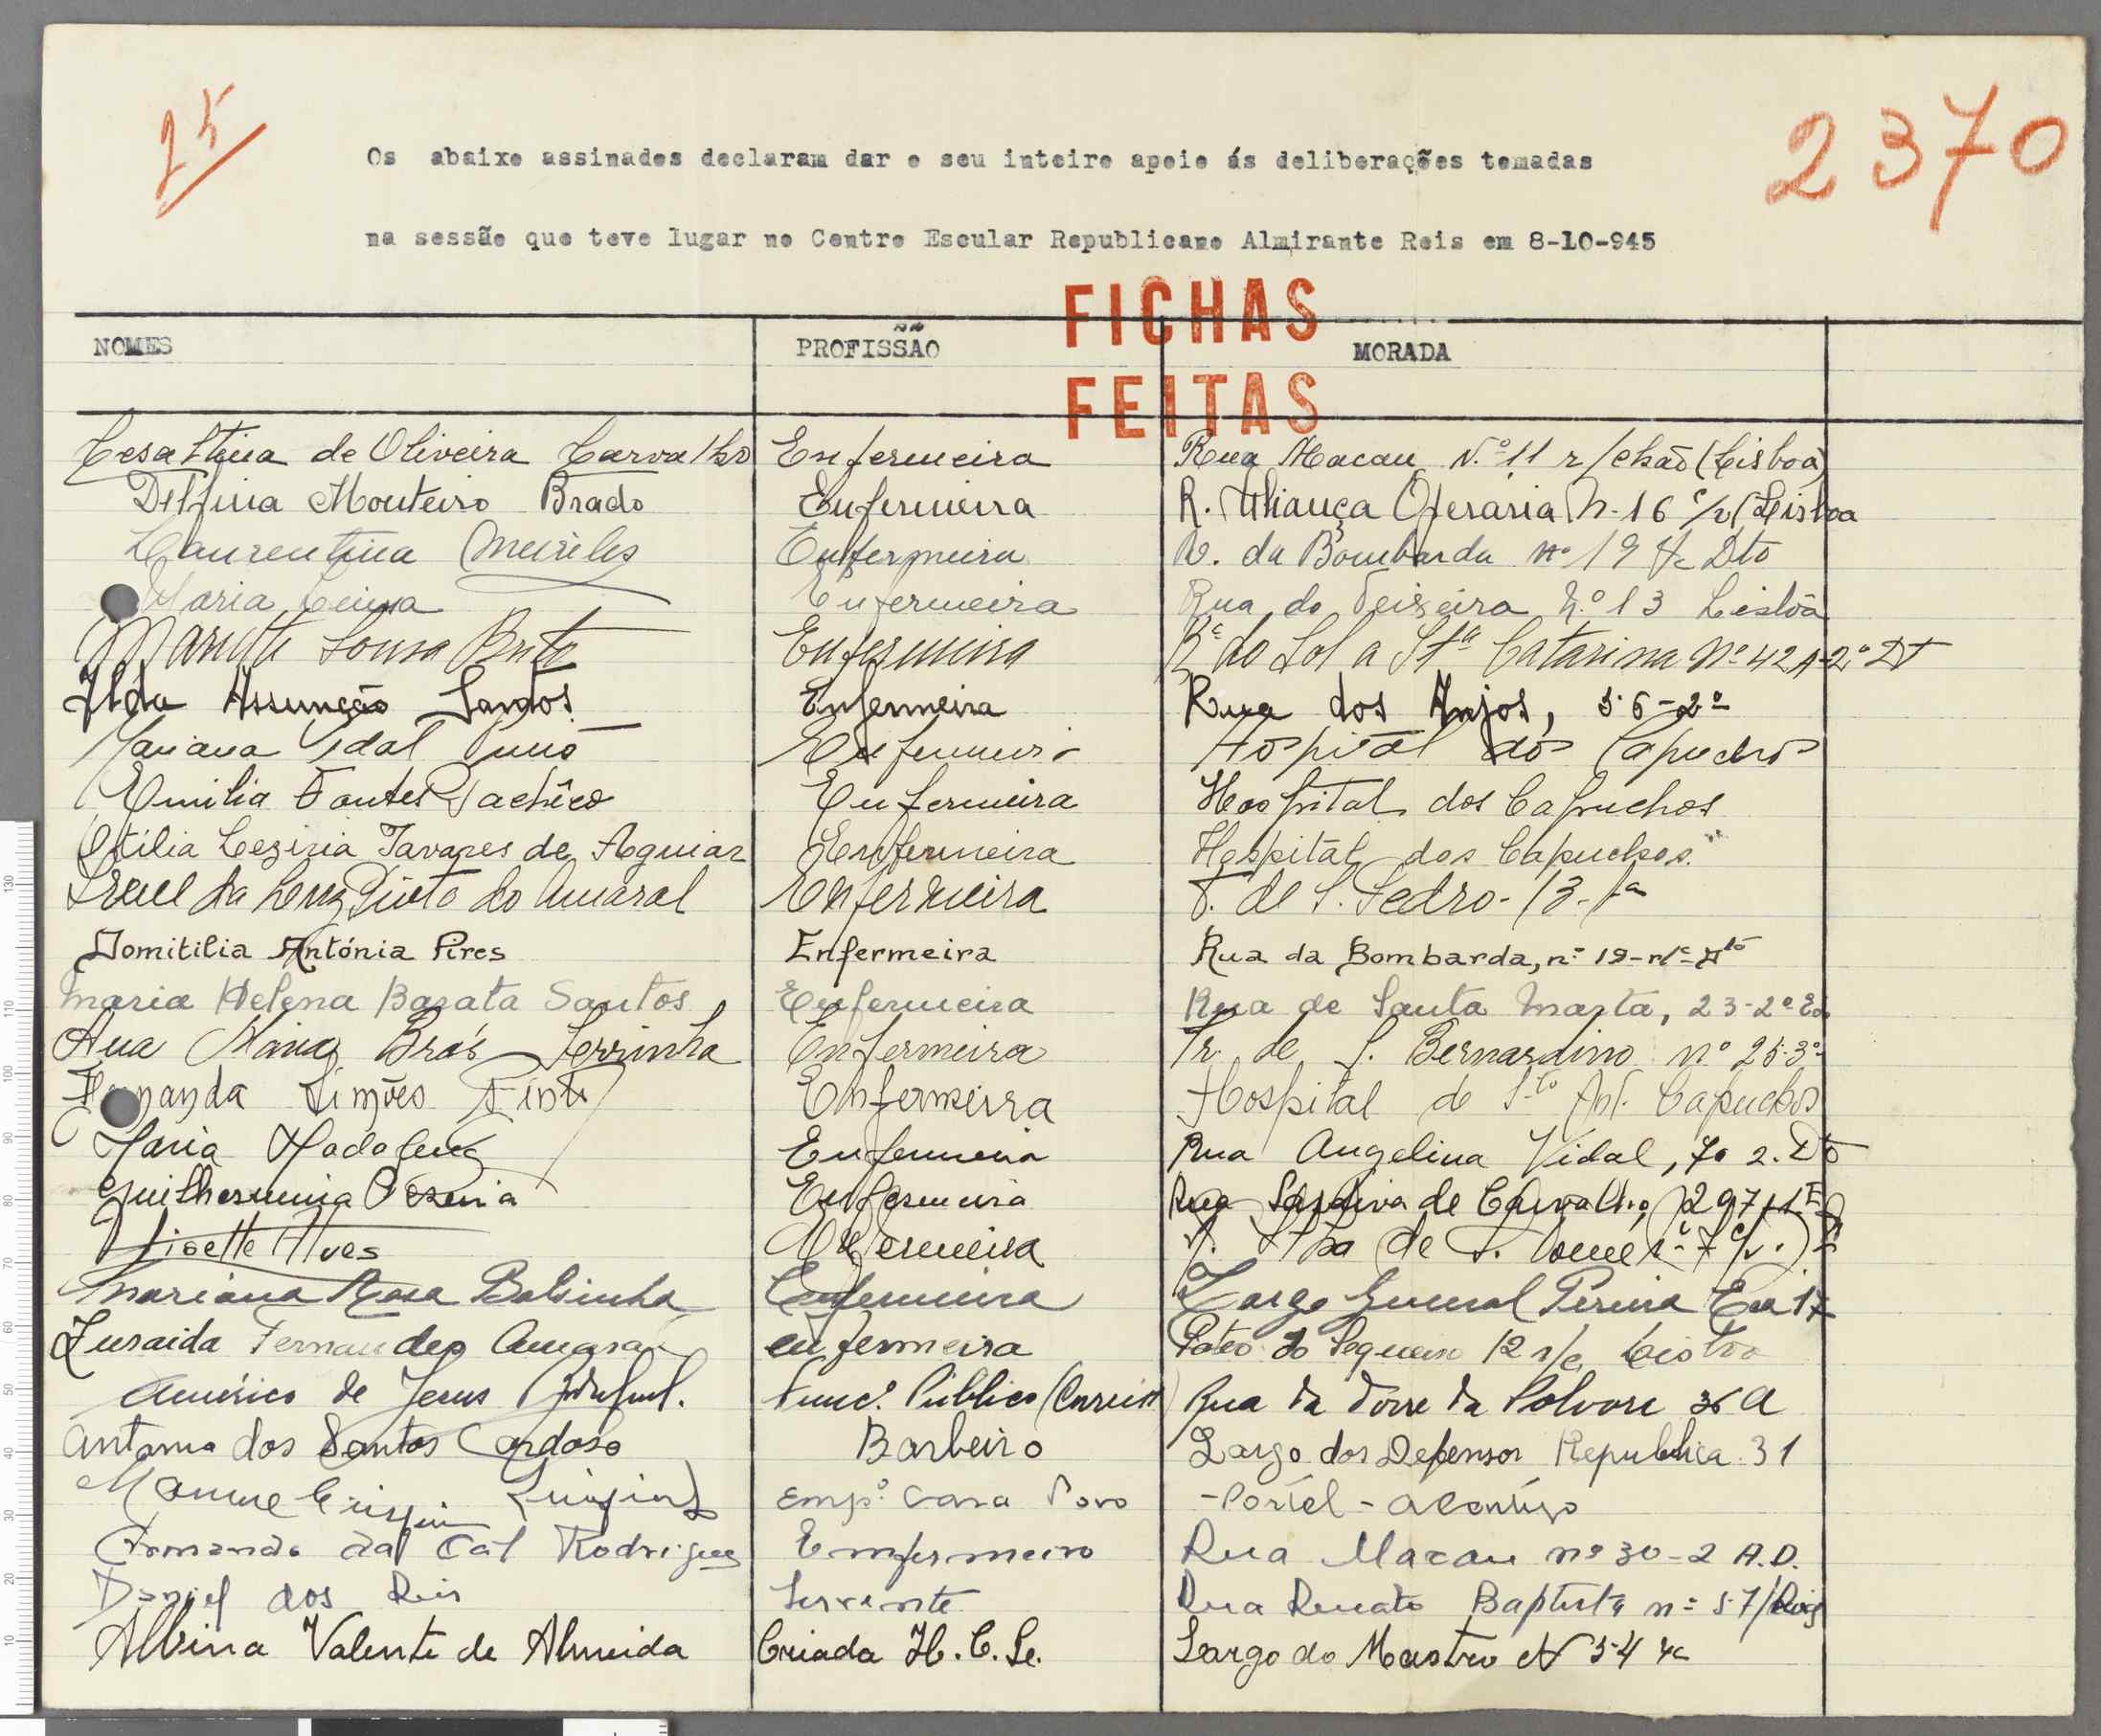 25
2370
Os abaixo assinados declaram dar o seu inteiro apoio ás deliberações tomadas
na sessão que teve lugar no Centro Escular Republicano Almirante Reis em 8-10-945
FICHAS
FEITAS
NOMES PROFISSÃO MORADA
Cesaltina de Oliveira Carvalho Enfermeira Rua Macau N.º 11 r/chão (Lisboa)
Delfina Monteiro Brado Enfermeira R. Aliança Operária N. 16 c/v (Lisboa
Laurentina Meireles Enfermeira R. da Bombarda nº 19 Dto
Maria Enfermeira Rua do Teixeira N.º 13 Lisbôa
Sousa Enfermeira R. do Sol a Stª Catarina Nº 42 A-2.º Dt
Ilda Assunção Santos Enfermeira Rua dos Anjos, 56-2º
Mariana Vidal Enfermeira Hospital dos Capuchos
Emilia Fontes Pachêco Enfermeira Hospital dos Capuchos
Otília Leziria Tavares de Aguiar Enfermeira Hospital dos Capuchos.
da Luz Pinto do Amaral Enfermeira T. de S. Pedro-13-1º
Domitilia António Pires Enfermeira Rua da Bombarda, nº 19-r/c-Dto
Maria Helena Barata Santos Enfermeira Rua de Santa Marta, 23-2º Eº
Ana Maria Brás Serrinha Enfermeira Tr. de S. Bernardino nº 25-3º
Fernanda Simões Pinto Enfermeira Hospital de Sto Ant. Capuchos
Maria Madalena Enfermeira Rua Angelina Vidal, 70 2. Dtº
Guilhermina Enfermeira Rua Saraiva de Carvalho, 297-1º E
Lisette Alves Enfermeira de S. nº 7 c/v.
Mariana Rosa Balsinha Enfermeira Largo General Pereira Eça 17
Zuraida Fernandes Amaral enfermeira Pateo do Sequeiro 12 r/c Lisboa
Américo de Jesus Func. Público (Correios) Rua da Torre da Polvora 36 A
Antonio dos Santos Cardoso Barbeiro Largo dos Defensor Republica 31
Manuel Crispim Empº Casa Povo -Portel-Alentejo
Armando dal Cal Rodrigues Emfermeiro Rua Macau nº 30-2 A.D.
Daniel dos Reis Servente Rua Renato Baptista nº 57
Albina Valente de Almeida Criada H.C.L. Largo do Mastro N 34 r/c